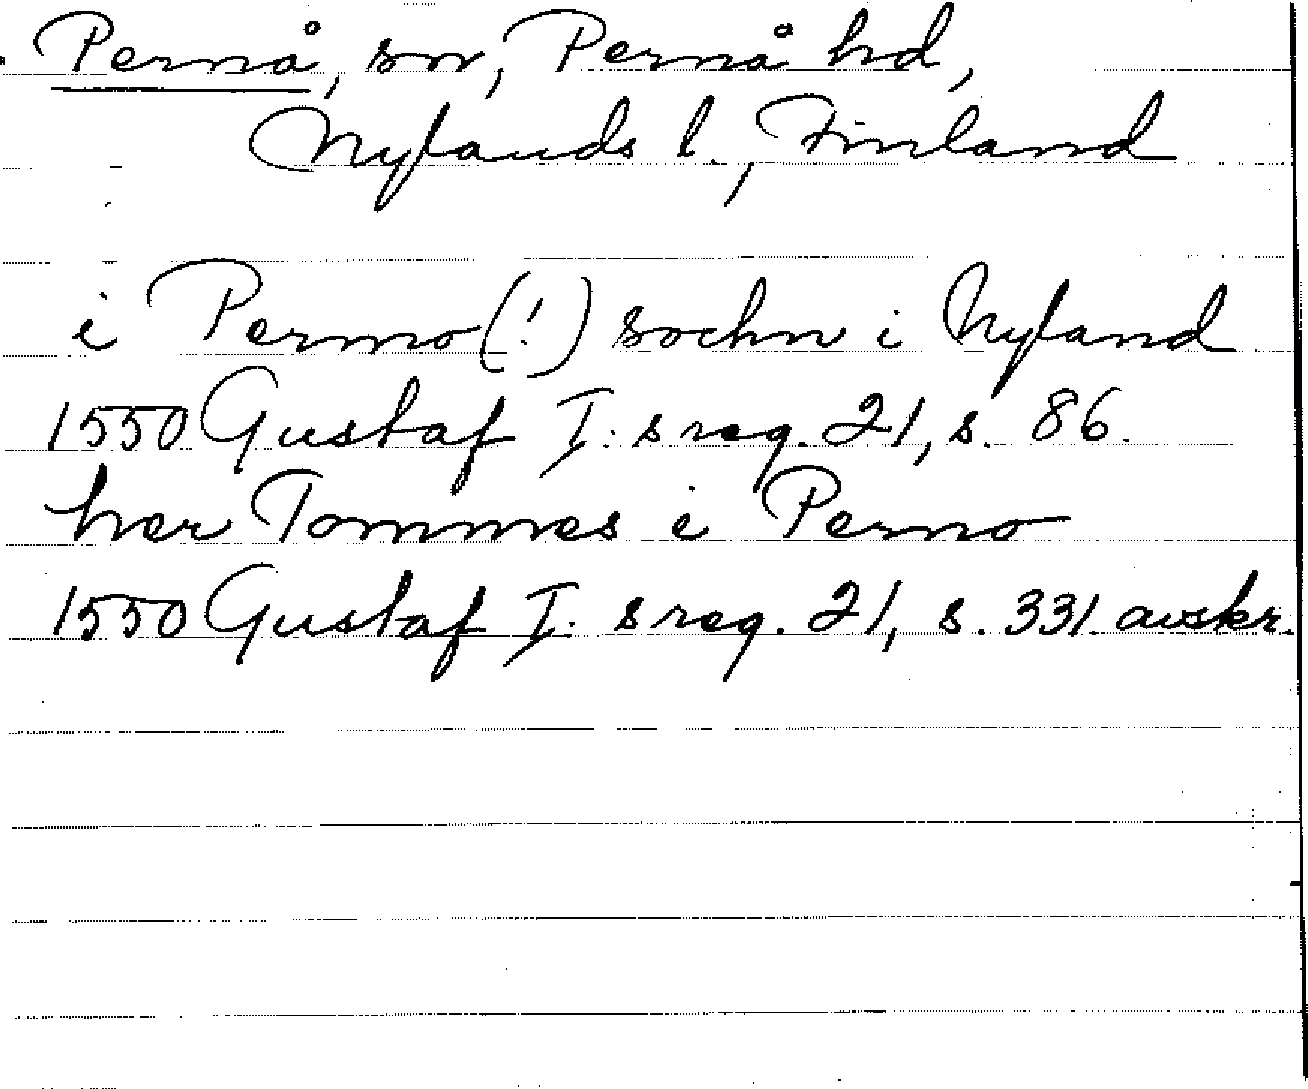 Pernå, sn, Pernå hd,
Nylands l., Finland
i Permo(!) sochn i Nyland
1550 Gustaf I:s reg. 21, s. 86.
her Tommes i Perno
1550 Gustaf I:s reg. 21, s. 331 avskr.